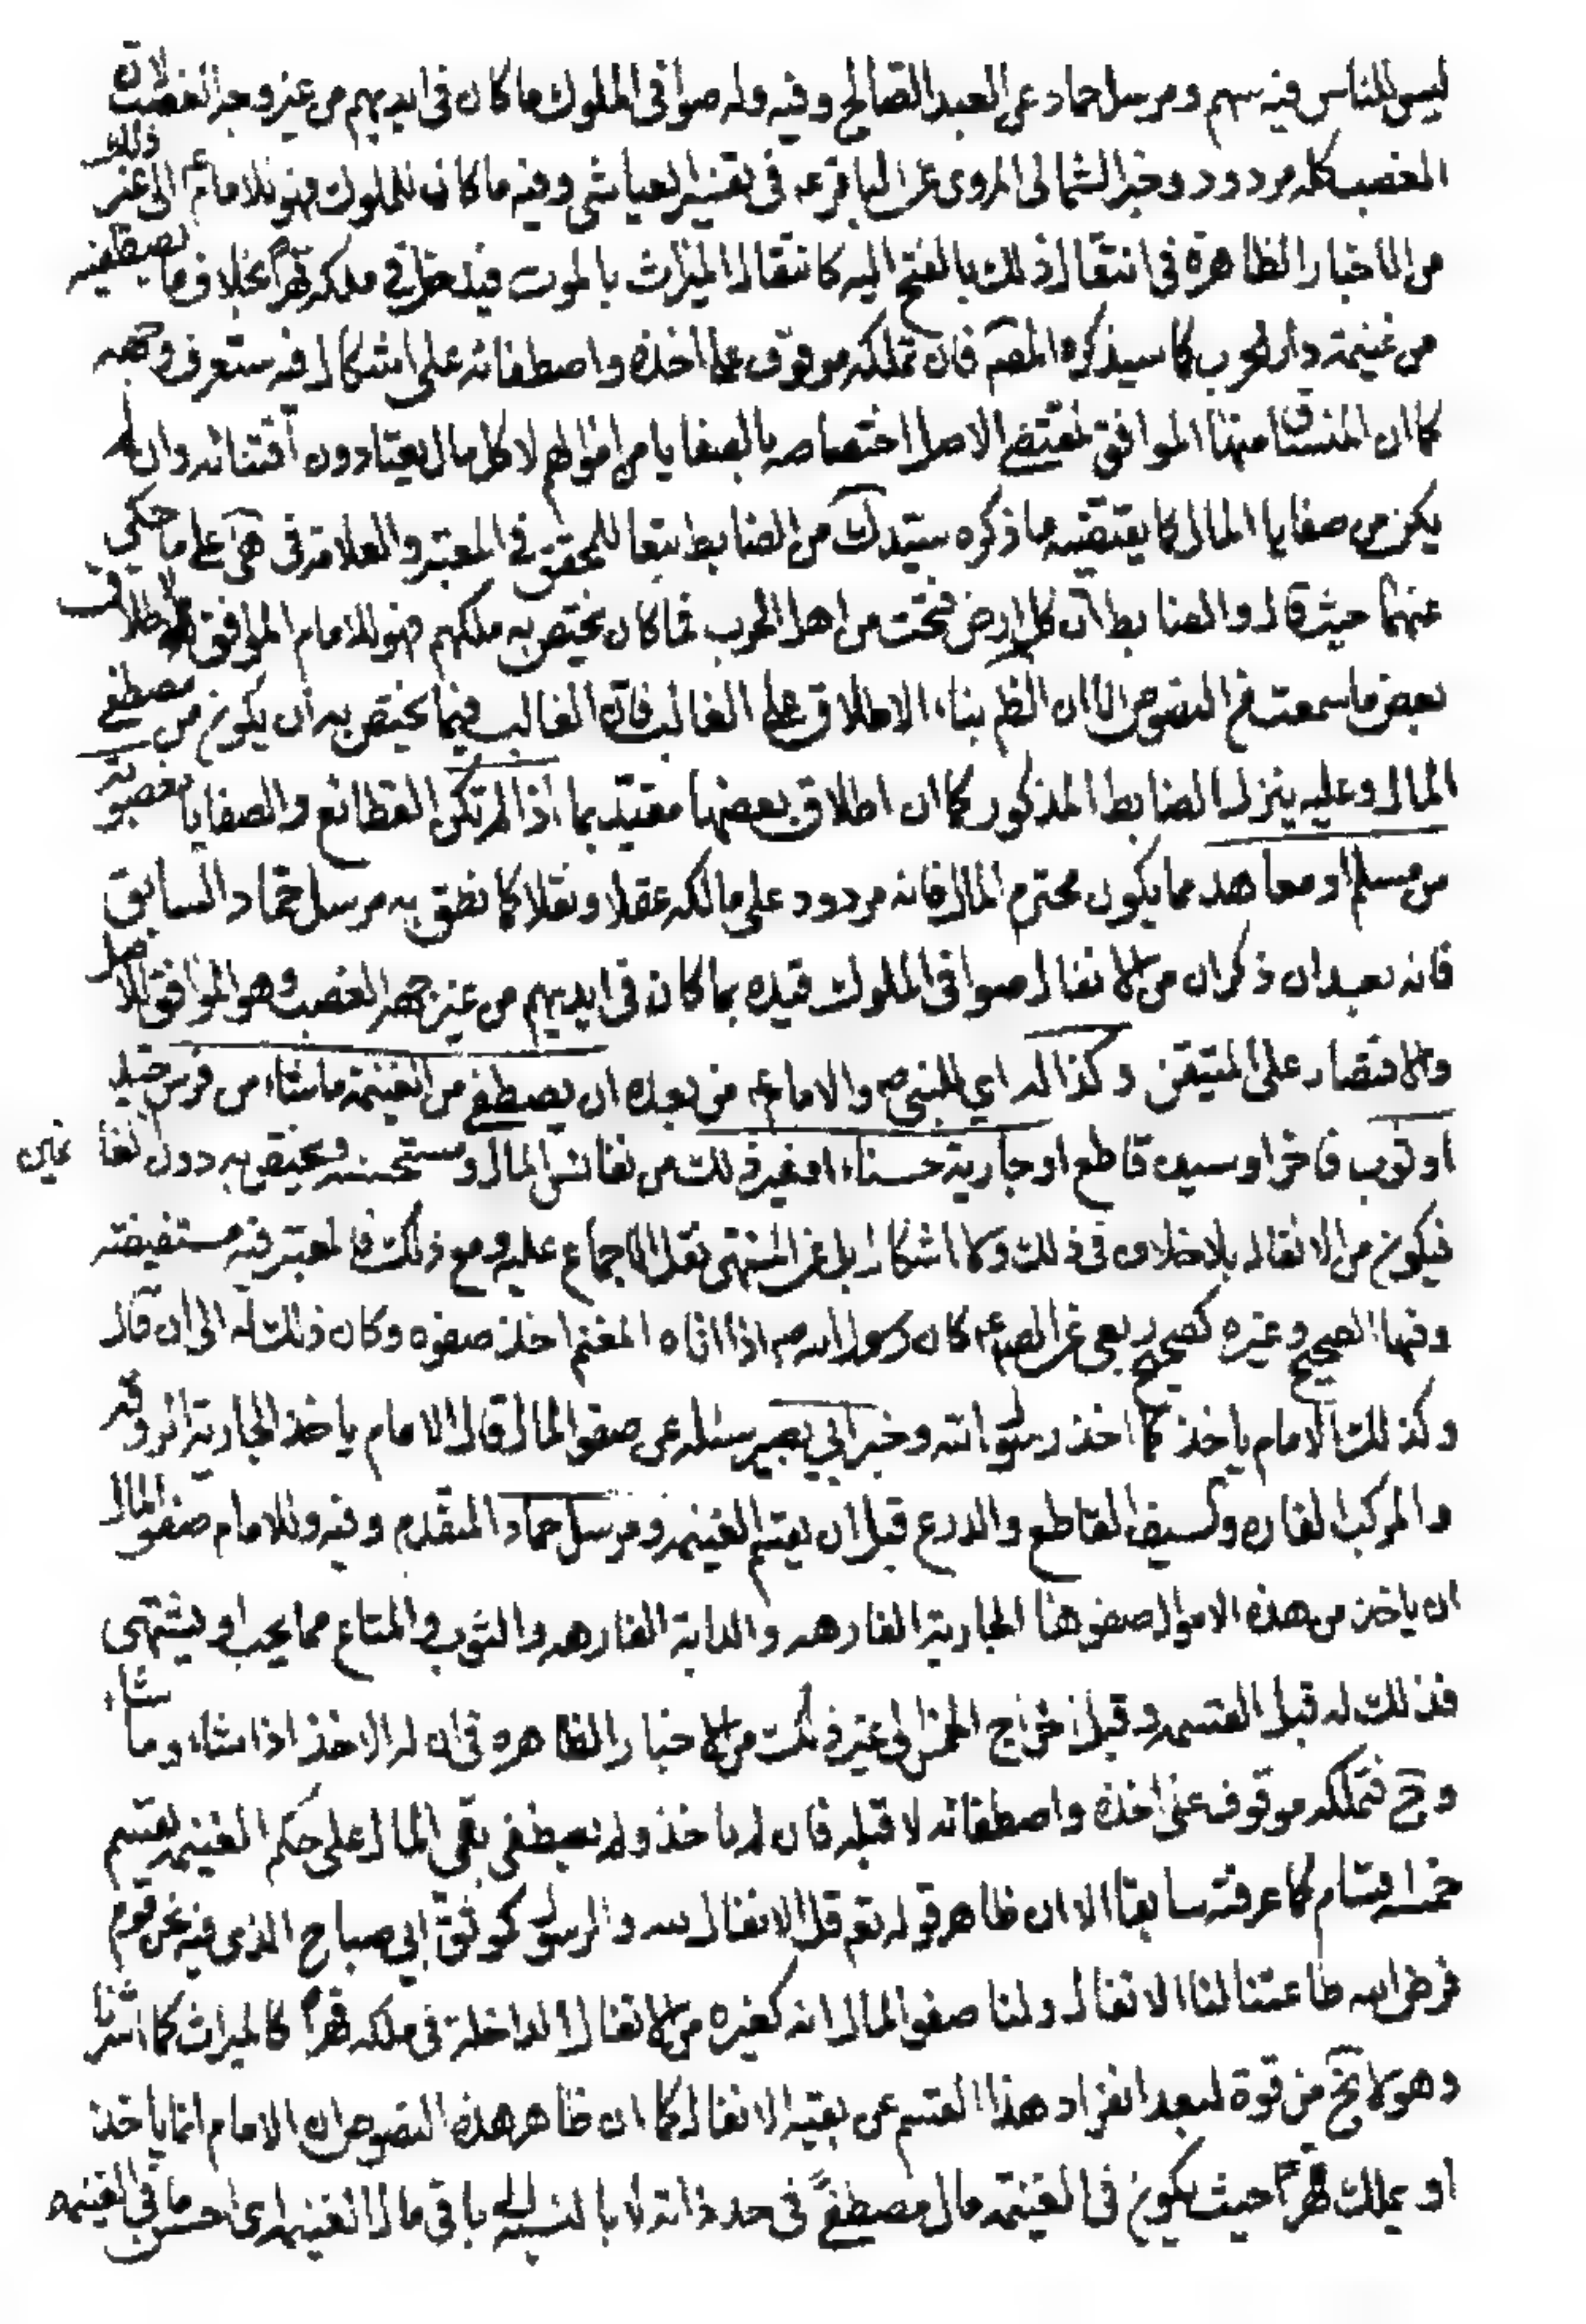 ليس للناس فيه سهم ومرسل حماد عن العبد الصالح وفيه وله صوافى الملوك ما كان فى ايديهم من غير وجه الغصب لان
الغصب كله مردود وخبر الثمالى المروى عن الباقر ع فى تفسير العياشى وفيه ما كان للملوك فهو للامام ع الى غير ذلك
من الاخبار الظاهرة فى انتقال ذلك بالفتح اليه كانتقال الميراث بالموت فيدخل في ملكه قهراً بخلاف ما يصطفيه
من غنيمة دار الحرب كما سيذكره المصم فان تملكه موقوف على اخذه واصطفائه على اشكال فيه ستعرف وجهه
كما ان المنساق منها الموافق لمقتضى الاصل اختصاصه بالصفايا من اموالهم لا كل مال يعتادون اقتنائه وان لم
يكن من صفايا المال كما يقتضيه ما ذكره سيد ك من الضابط تبعا للمحقق في المعتبر والعلامة فى هى على ما حكي
عنهما حيث قال والضابط ان كل ارض فتحت من اهل الحرب فما كان يختص به ملكهم فهو للامام الموافق لاطلاق
بعض ما سمعت من النصوص الا ان الظم بناء الاطلاق على الغالب فان الغالب فيما يختص به ان يكون من مصطفى
المال وعليه ينزل الضابط المذكور كما ان اطلاق بعضها مقيد بما اذا لم تكن القطائع والصفايا مغصوبة
من مسلم او معاهد مما يكون محترم المال فانه مردود على مالكه عقلا ونقلا كما نطق به مرسل حماد السابق
فانه بعد ان ذكر ان من الانفال صوافى الملوك قيده بما كان فى ايديهم من غير جهة الغصب وهو الموافق للاصل
والاقتصار على المتيقن وكذا له اي للنبى ص والامام ع من بعده ان يصطفى من الغنيمة ما شاء من فرس جيد
او ثوب فاخر او سيف قاطع او جارية حسناء او غير ذلك من نفائس المال ومستحسنه ويختص به دون الغانمين
فيكون من الانفال بلا خلاف فى ذلك ولا اشكال بل عن المنتهى نقل الاجماع عليه ومع ذلك فالمعتبر فيه مستفيضة
وفيها الصحيح وغيره كصحيح ربعى عن الصم ع كان رسول الله ص اذا اتاه المغنم اخذ صفوه وكان ذلك له الى ان قال
وكذلك الامام ياخذ كما اخذ رسول الله وخبر ابي بصير سئله عن صفو المال قال الامام ياخذ الجارية الروقة
والمركب الفاره والسيف القاطع والدرع قبل ان يقسم الغنيمة ومرسل حماد المتقدم وفيه وللامام صفو المال
ان ياخذ من هذه الاموال صفوها الجارية الفارهه والدابة الفارهه والثوب والمتاع مما يحب او يشتهى
فذلك له قبل القسمة وقبل اخراج الخمس الى غير ذلك من الاخبار الظاهره فى ان له الاخذ اذا شاء وما شاء
وح فتملكه موقوف على اخذه واصطفائه لا قبله فان لم ياخذ ولم يصطفى بقى المال على حكم الغنيمة يقسم
خمسة اقسام كما عرفته سابقا الا ان ظاهر قوله تع قل الانفال لله والرسول كموثق ابي صباح الذى فيه نحن قوم
فرض الله طاعتنا لنا الانفال ولنا صفو المال انه كغيره من الانفال الداخلة فى ملكه قهراً كالميراث كما اشرنا
وهو لا يخ من قوة لبعد انفراد هذا القسم عن بقيه الانفال كما ان ظاهر هذه النصوص ان الامام انما ياخذ
او يملك قهراً حيث يكون فى الغنيمة مال مصطفىً فى حد ذاته لا بالنسبة الى باقى مال الغنيمة اى احسن ما في الغنيمه